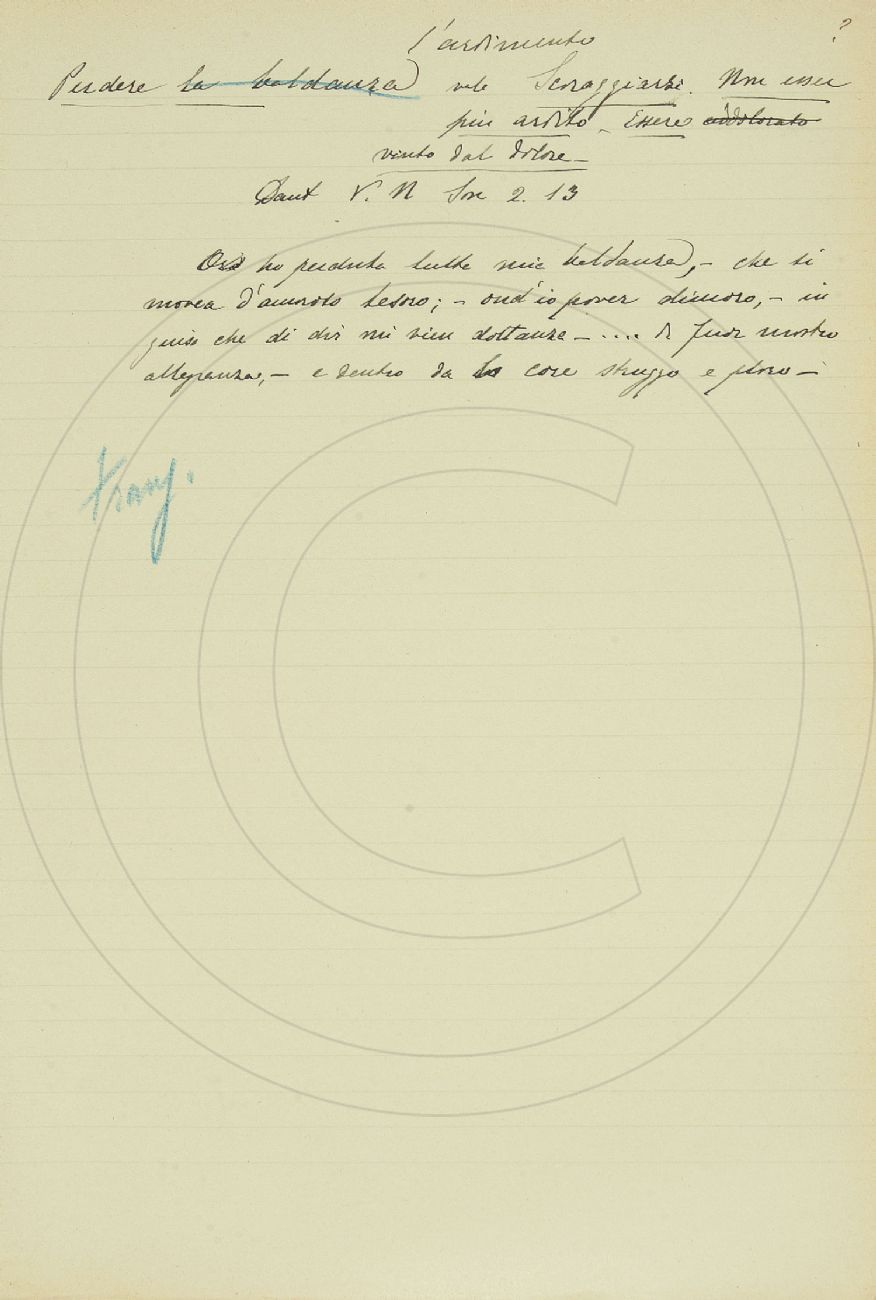 l'ardimento ?
Perdere la baldanza vale Scoraggiarsi. Non esser
più ardito – Essere addolorato
vinto dal dolore –
Dant V. N Son 2. 13
Ora ho perduta tutta mia baldanza, – che si
movea d'amoroso tesoro; – ond'io pover dimoro, – in
guisa che di dir mi vien dottanza – .... Di fuor mostro
allegranza, – e dentro da lo core struggo e ploro –
Frang.
C